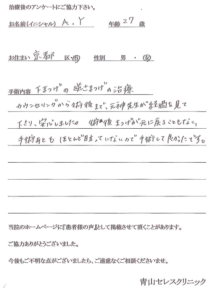 治療後のアンケートにご協力下さい。
お名前(イニシャル) A.Y 年齢 27 歳
お住まい 京都 区・市 性別 男・女
手術内容 下まつげの逆さまつげの治療
カウンセリングから術後まで、元神先生が経過を見て
下さり、安心しました。術後まつげが元に戻ることもなく、
手術あとも ほとんど目立っていないので手術して良かったです。
当院のホームページにて患者様の声として掲載させて頂くことがあります。
ご協力ありがとうございました。
今後もご不明な点がございましたら、ご遠慮なくご相談くださいませ。
青山セレスクリニック